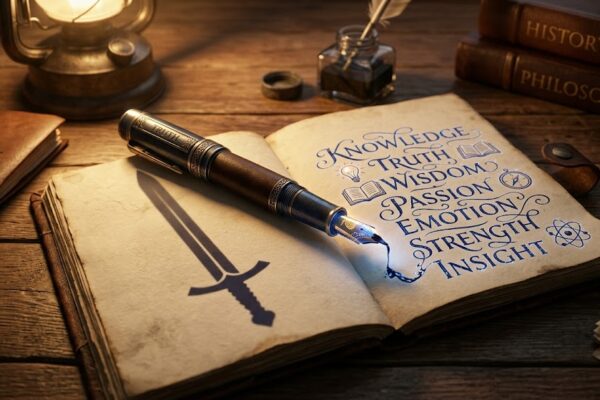 HISTORY
PHILOSOPH
KNOWLEDGE
TRUTH
WISDOM
PASSION
EMOTION
STRENGTH
INSIGHT